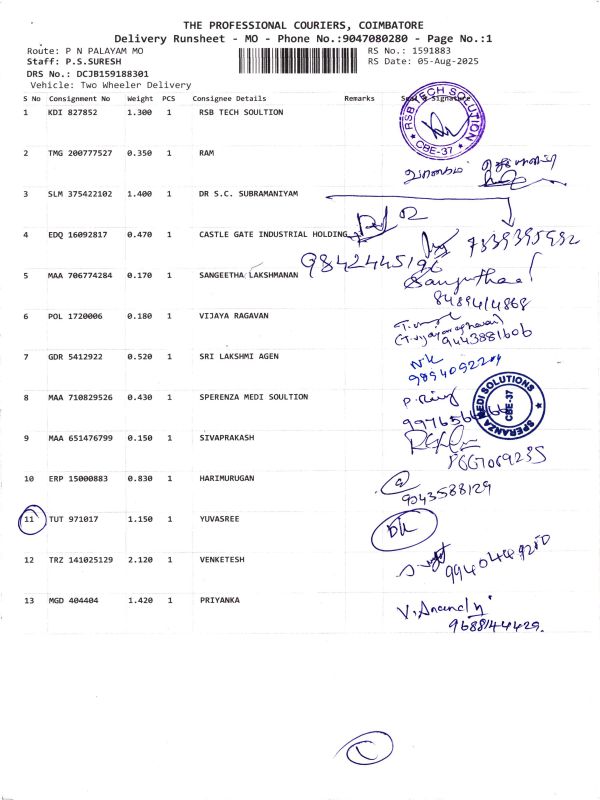 THE PROFESSIONAL COURIERS, COIMBATORE
Delivery Runsheet - MO - Phone No.:9047080280 - Page No.:1
Route: P N PALAYAM MO RS No.: 1591883
Staff: P.S.SURESH RS Date: 05-Aug-2025
DRS No.: DCJB159188301
Vehicle: Two Wheeler Delivery
S No Consignment No Weight PCS Consignee Details Remarks Seal & Signature
1 KDI 827852 1.300 1 RSB TECH SOULTION
RSB TECH SOLUTION
CBE-37
2 TMG 200777527 0.350 1 RAM
3 SLM 375422102 1.400 1 DR S.C. SUBRAMANIYAM
4 EDQ 16092817 0.470 1 CASTLE GATE INDUSTRIAL HOLDING
7339395992
9842445196
5 MAA 706774284 0.170 1 SANGEETHA LAKSHMANAN
8489414868
6 POL 1720006 0.180 1 VIJAYA RAGAVAN
9443881606
7 GDR 5412922 0.520 1 SRI LAKSHMI AGEN
NK
8 MAA 710829526 0.430 1 SPERENZA MEDI SOULTION
SPERANZA MEDI SOLUTIONS
CBE-37
9 MAA 651476799 0.150 1 SIVAPRAKASH
10 ERP 15000883 0.830 1 HARIMURUGAN
9043588129
11 TUT 971017 1.150 1 YUVASREE
12 TRZ 141025129 2.120 1 VENKETESH
13 MGD 404404 1.420 1 PRIYANKA
V. Anandhi
9688144429.